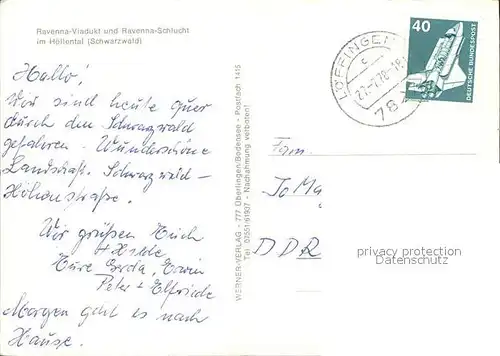 Ravenna-Viadukt und Ravenna-Schlucht
im Höllental (Schwarzwald)
Hallo!
Wir sind heute quer
durch den Schwarzwald
gefahren. Wunderschöne
Landschaft. Schwarzwald-
Höhenstraße.
Wir grüßen Euch
+ Hilde
Eure Gerda, Erwin
Peter + Elfriede
Morgen geht es nach
Hause.
WERNER-VERLAG - 777 Überlingen/Bodensee - Postfach 1415
Tel. 07551/61937 - Nachahmung verboten!
LÖFFINGEN
c
78
40
DEUTSCHE BUNDESPOST
Fam.
DDR
privacy protection
Datenschutz